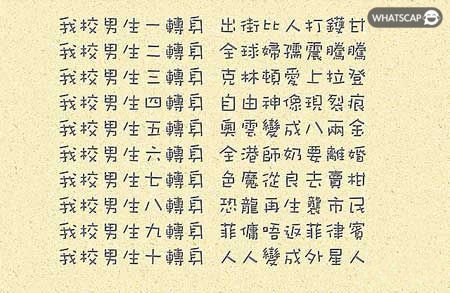 WHATSCAP
我校男生一轉身 出街比人打鑊甘
我校男生二轉身 全球婦孺震騰騰
我校男生三轉身 克林頓愛上拉登
我校男生四轉身 自由神像現裂痕
我校男生五轉身 奧雲變成八兩金
我校男生六轉身 全港師奶要離婚
我校男生七轉身 色魔從良去賣柑
我校男生八轉身 恐龍再生襲市民
我校男生九轉身 菲傭唔返菲律賓
我校男生十轉身 人人變成外星人